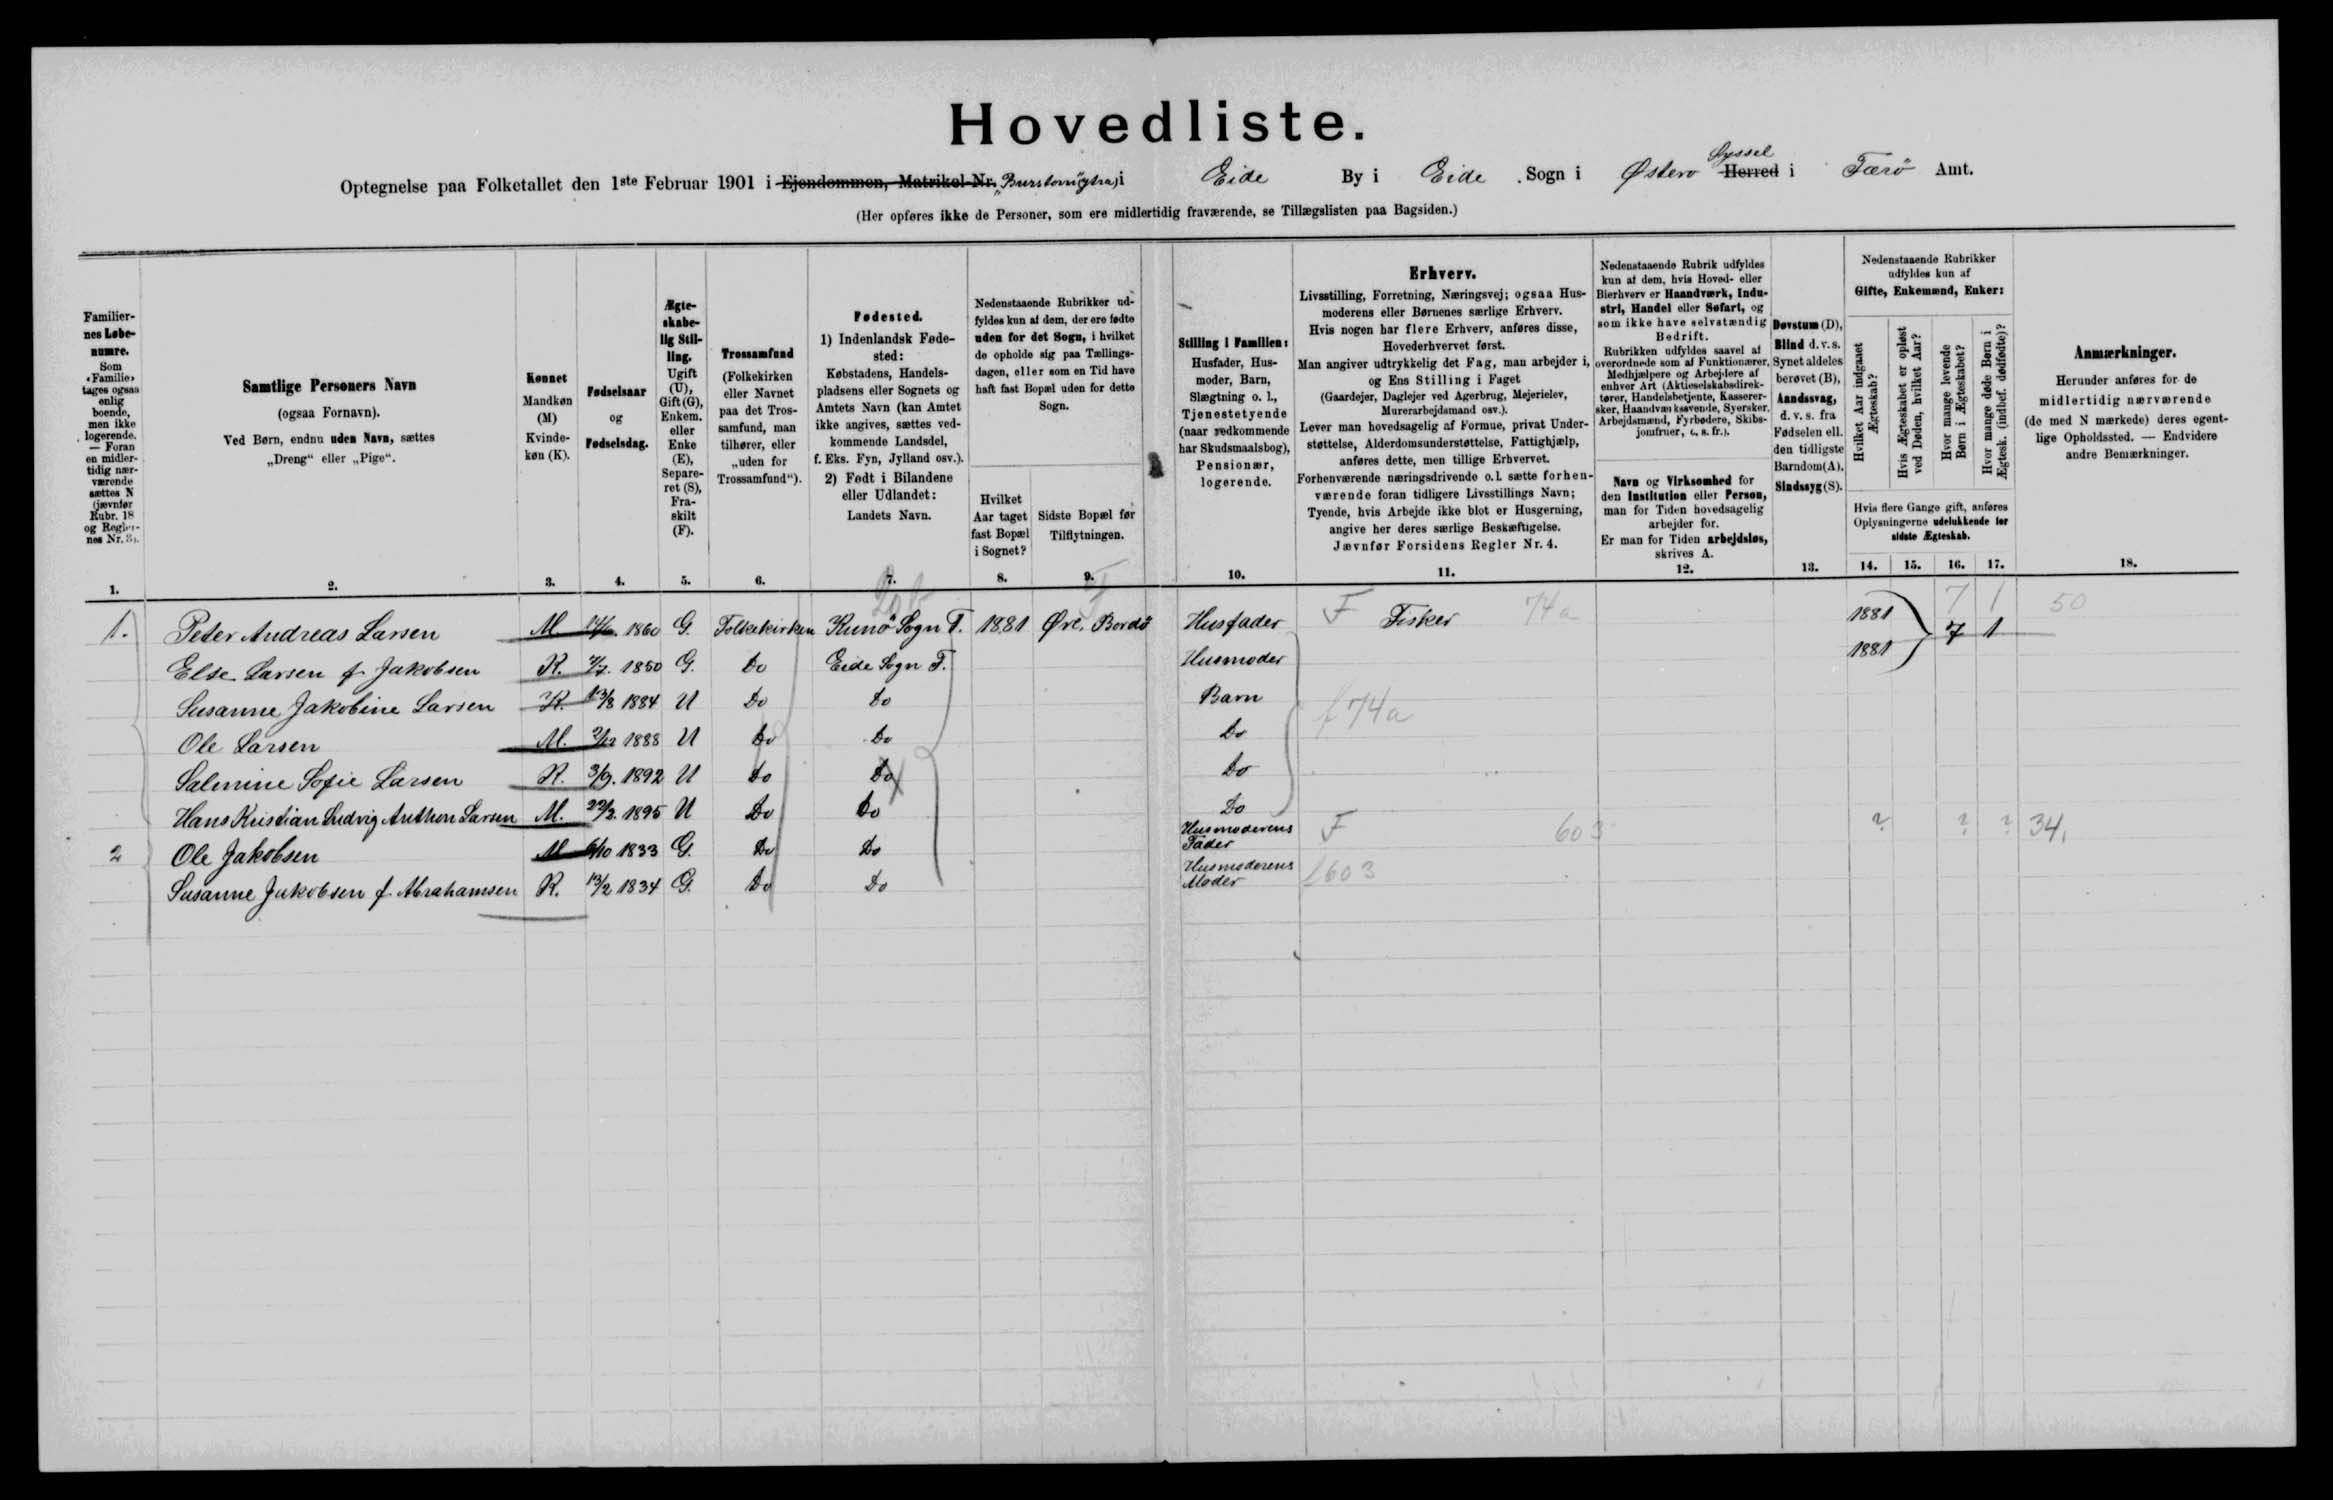 Hovedliste.
Optegnelse paa Folketallet den 1ste Februar 1901 i Ejendommen, Matrikel-Nr. i Eide By i Eide Sogn i Østerø Herred Syssel i Færö Amt.
(Her opføres ikke de Personer, som ere midlertidig fraværende, se Tillægslisten paa Bagsiden.)
Familiernes Løbenumre.
Som «Familie» tages ogsaa enlig boende, men ikke logerende. — Foran en midlertidig nærværende sættes N (jævnfør Rubr. 18 og Reglernes Nr. 3).
Samtlige Personers Navn
(ogsaa Fornavn).
Ved Børn, endnu uden Navn, sættes
„Dreng“ eller „Pige“.
Kønnet
Mandkøn (M)
Kvindekøn (K).
Fødselsaar
og
Fødselsdag.
Ægteskabelig Stilling.
Ugift (U), Gift (G), Enkem. eller Enke (E), Separeret (S), Fraskilt (F).
Trossamfund
(Folkekirken eller Navnet paa det Trossamfund, man tilhører, eller „uden for Trossamfund“).
Fødested.
1) Indenlandsk Fødested:
Købstadens, Handelspladsens eller Sognets og Amtets Navn (kan Amtet ikke angives, sættes vedkommende Landsdel, f. Eks. Fyn, Jylland osv.).
2) Født i Bilandene eller Udlandet:
Landets Navn.
Nedenstaaende Rubrikker udfyldes kun af dem, der ere fødte uden for det Sogn, i hvilket de opholde sig paa Tællingsdagen, eller som en Tid have haft fast Bopæl uden for dette Sogn.
Hvilket Aar taget fast Bopæl i Sognet?
Sidste Bopæl før Tilflytningen.
Stilling i Familien:
Husfader, Husmoder, Barn, Slægtning o. l., Tjenestetyende (naar vedkommende har Skudsmaalsbog), Pensionær, logerende.
Erhverv.
Livsstilling, Forretning, Næringsvej; ogsaa Husmoderens eller Børnenes særlige Erhverv.
Hvis nogen har flere Erhverv, anføres disse, Hovederhvervet først.
Man angiver udtrykkelig det Fag, man arbejder i, og Ens Stilling i Faget
(Gaardejer, Daglejer ved Agerbrug, Mejerielev, Murerarbejdsmand osv.).
Lever man hovedsagelig af Formue, privat Understøttelse, Alderdomsunderstøttelse, Fattighjælp, anføres dette, men tillige Erhvervet.
Forhenværende næringsdrivende o. l. sætte forhenværende foran tidligere Livsstillings Navn;
Tyende, hvis Arbejde ikke blot er Husgerning, angive her deres særlige Beskæftigelse.
Jævnfør Forsidens Regler Nr. 4.
Nedenstaaende Rubrik udfyldes kun af dem, hvis Hoved- eller Bierhverv er Haandværk, Industri, Handel eller Søfart, og som ikke have selvstændig Bedrift.
Rubrikken udfyldes saavel af overordnede som af Funktionærer, Medhjælpere og Arbejdere af enhver Art (Aktieselskabsdirektører, Handelsbetjente, Kasserersker, Haandværkssvende, Syersker, Arbejdsmænd, Fyrbødere, Skibsjomfruer, o. s. fr.).
Navn og Virksomhed for den Institution eller Person, man for Tiden hovedsagelig arbejder for.
Er man for Tiden arbejdsløs, skrives A.
Døvstum (D), Blind d. v. s. Synet aldeles berøvet (B), Aandssvag, d. v. s. fra Fødselen ell. den tidligste Barndom (A), Sindssyg (S).
Nedenstaaende Rubrikker udfyldes kun af
Gifte, Enkemænd, Enker:
Hvilket Aar indgaaet Ægteskab?
Hvis Ægteskabet er opløst ved Døden, hvilket Aar?
Hvor mange levende Børn i Ægteskabet?
Hvor mange døde Børn i Ægtesk. (indbef. dødfødte)?
Hvis flere Gange gift, anføres Oplysningerne udelukkende for sidste Ægteskab.
Anmærkninger.
Herunder anføres for de midlertidig nærværende (de med N mærkede) deres egentlige Opholdssted. — Endvidere andre Bemærkninger.
1. 2. 3. 4. 5. 6. 7. 8. 9. 10. 11. 12. 13. 14. 15. 16. 17. 18.
7 1 50
1. Peter Andreas Larsen M 1860 G. Folkekirken Kunö Sogn F. 1881 Bordö Husfader F Fisker 74a 1881 7 1
Else Larsen f. Jakobsen K. 1850 G. Do Eide Sogn F. Husmoder 1881
Susanne Jakobine Larsen K. 13/8 1884 U Do Do Barn f 74a
Ole Larsen M. 2/12 1888 U Do Do Do
Salmine Sofie Larsen K. 3/9. 1892 U Do Do Do
Hans Kristian Ludvig Anthon Larsen M. 1895 U Do Do Do
2 Ole Jakobsen M 6/10 1833 G. Do Do Husmoderens Fader F 603 ? ? ? 34.
Susanne Jakobsen f. Abrahamsen K. 13/2 1834 G. Do Do Husmoderens Moder f 603